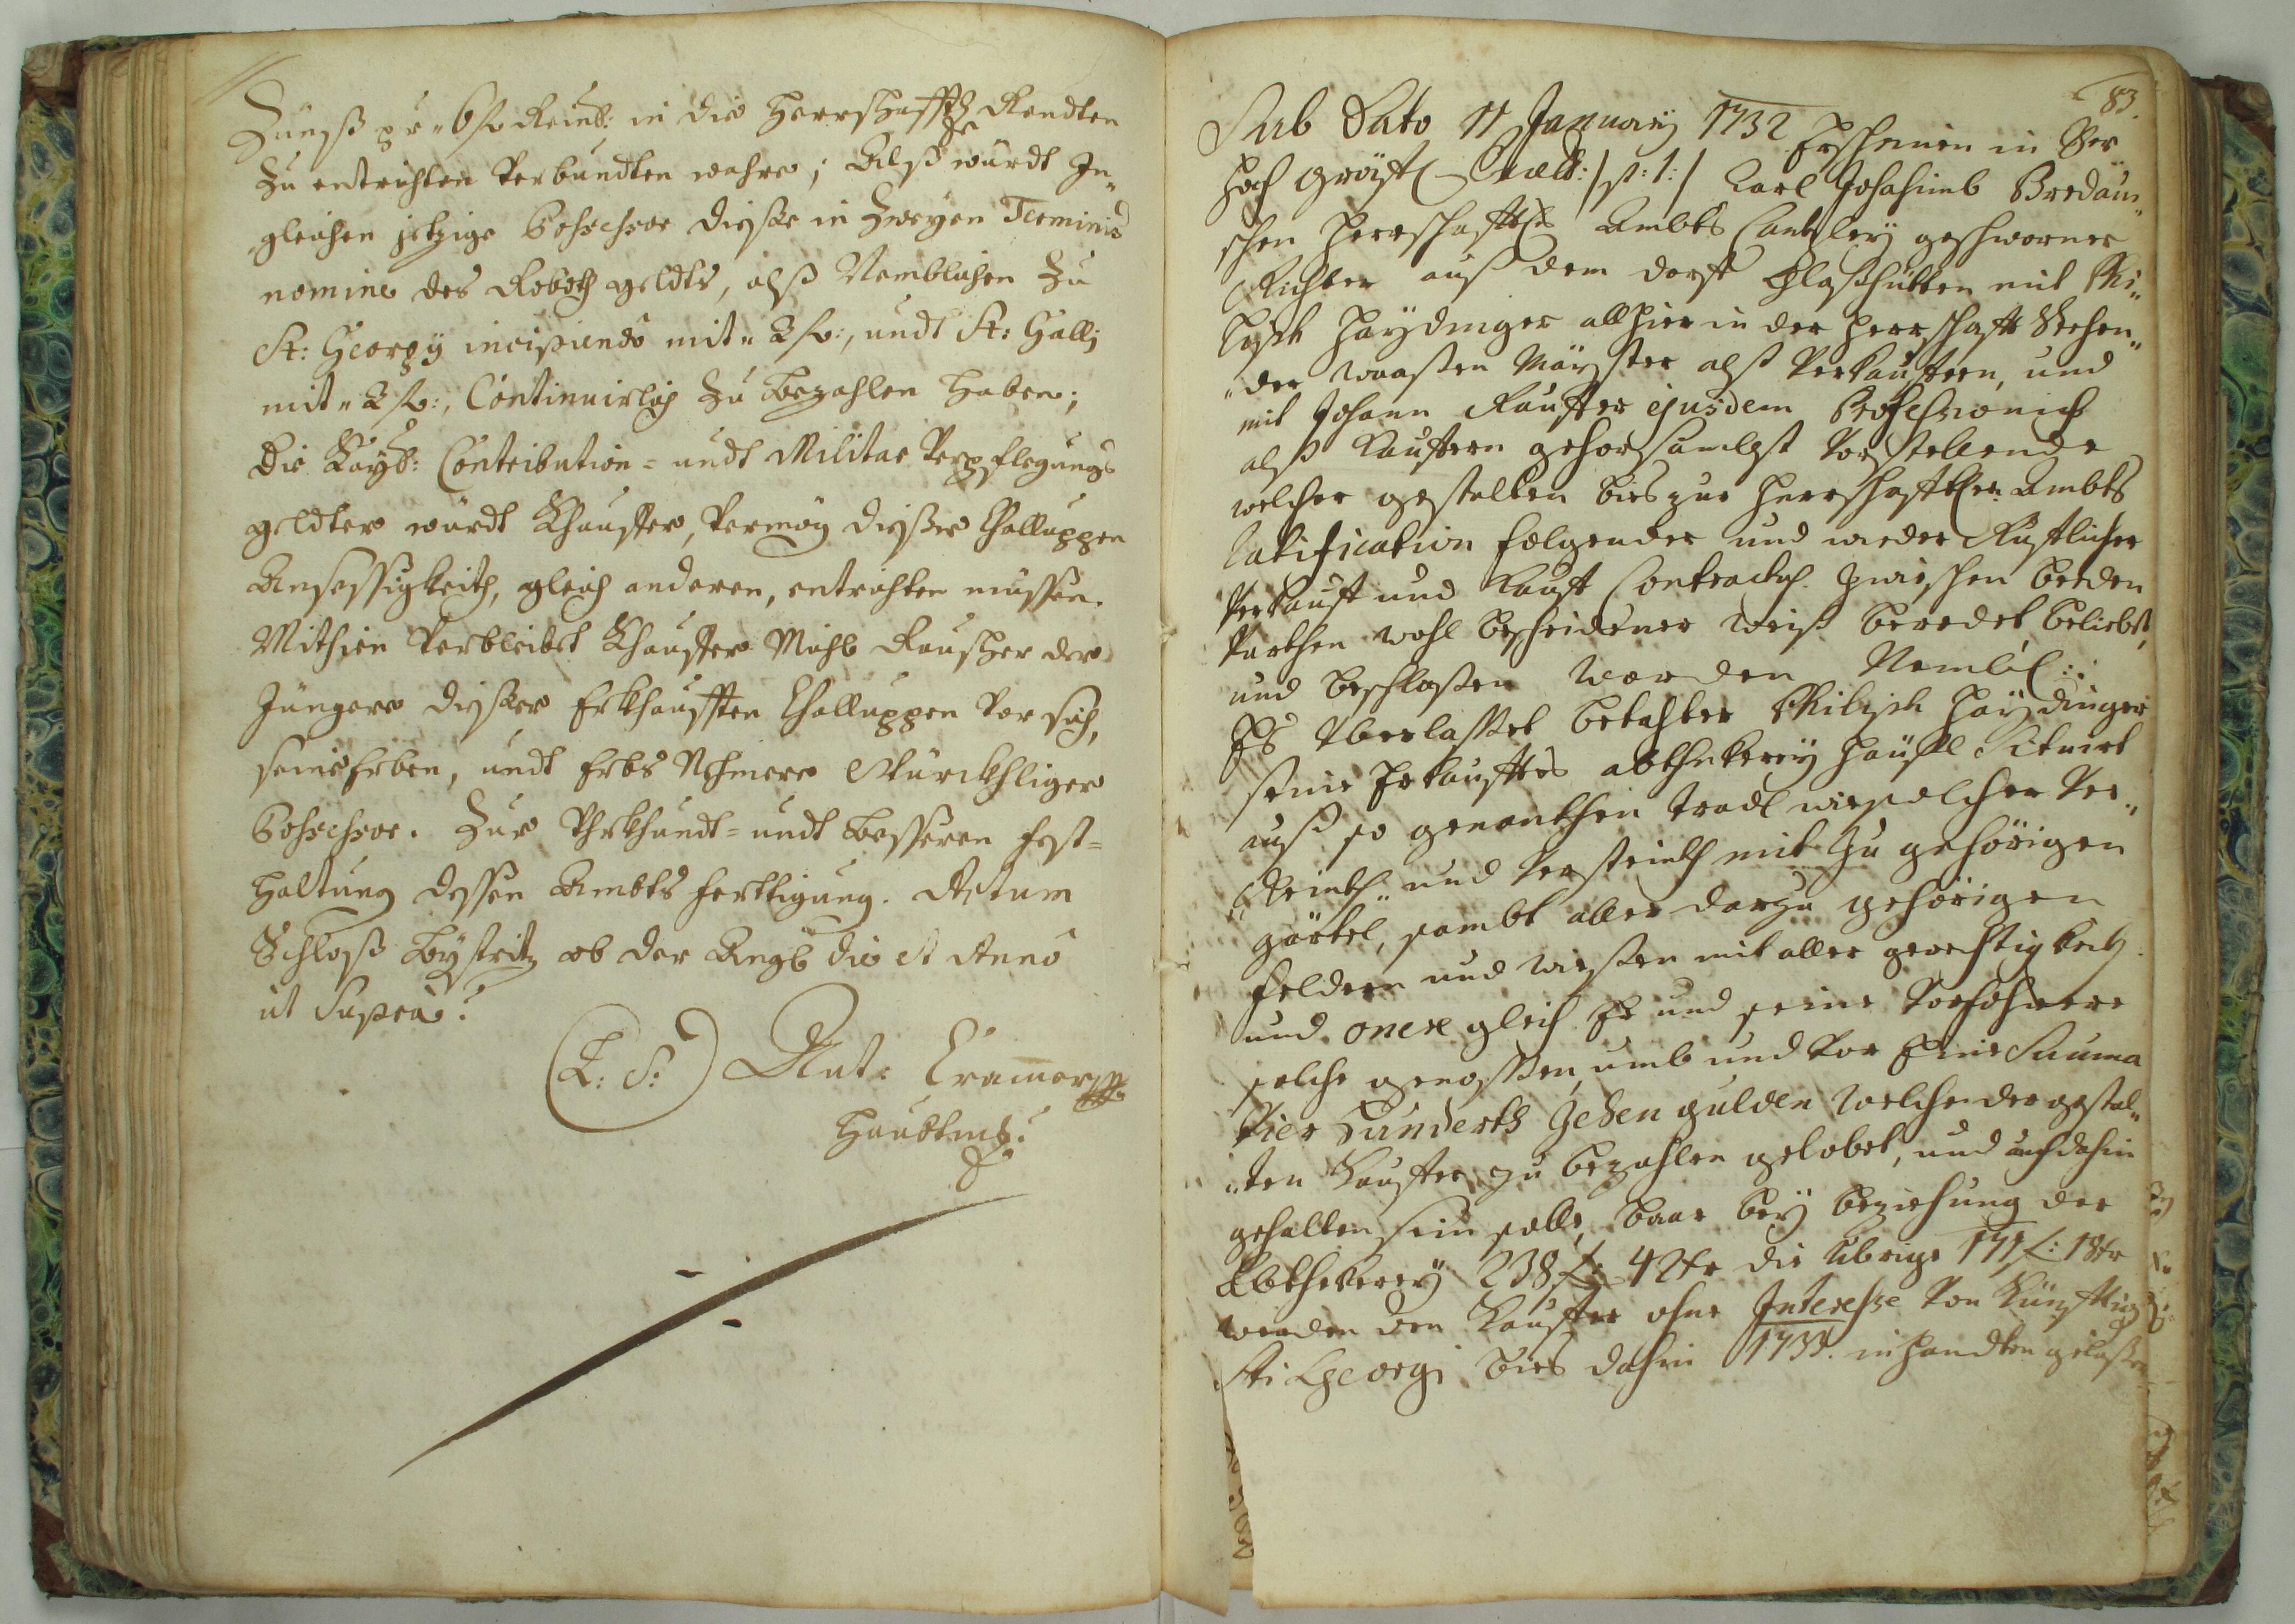 Zünß pr 6 fl Reinl: in die Herrschafftl Rendten
zu entrichten verbundten wahre; Alß würdt In„
„gleichen jetzige Possessor dießer in zweyen Terminis
nomine des Roboth geldts, alß Nemblichen zu
St: Georgy incipiendo mit„ 2 fl:, undt St: Galli
mit„ 2 fl:, Continuirlich zu bezahlen haben;
Die Kayß: Contribution= undt Militar Verpflegungs
geldter würdt Khauffer, vermög dießer Challuppen
Ansessigkeith, gleich anderen, entrichten müssen.
Mithien verbleibet Khauffer Mühl Rauscher der
Jüngere dießer Erkhaufften Challuppen vor sich,
seine Erben, undt Erbs Nehmere Würckhliger
Possessor. Zur Uhrkhundt= undt besseren fest=
haltung dessen Ambts Ferttigung. Actum
Schloß Bystritz ob der Angl die et Anno
ut Supra:
(L: S:) Ant: Cramer
Haubtm:
83.
Sub Dato 11 January 1732 Erscheinen in Der
Hoch Gräfl : / p: t: / Carl Johahimb Bredäui„
schen Herrschafftl Ambts Cantzley geschworner
Richter auß dem dorff Glaßhütten mit Phi„
lipp Haydinger allhier in der Herrschafft
„der Maister alß Verkauffern, und
mit Johann Rauscher ejusdem Professionis
alß Kauffern gehorsambst vorstellende
welcher gestalten bies zur Herrschafftl: Ambts
Ratification folgender und wieder Rufflicher
Verkauff und Kauff Contract. zwischen beeden
Parthen wohl bescheidener weiß beredet beliebet,
und beschloßen worden Nemlich:
Es Überlasset betahter Philipp Haydinger
seine Erkaufftes häusl Situirt
auß so genanthen wie solcher ver„
„Reinth„ und versteinth mit zu gehörigen
gärtel, sambt aller darzu gehörigen
Feldern und wießen mit aller gerechtigkeit
und onere gleich Er und seine Vorfahrere
solche genossen, umb und vor Eine Summa
Vier Hunderth Zehen gulden welche der gestal„
„ten Kauffer zu bezahlen gelobet, und auch dahin
gehalten sein solle, baar bey beziehung der
238 f: 42 kr die übrige 171 f: 18 kr
werden dem Kauffer ohne Interesse von Künfftig
Sti Georgi bies dahin 1733. in handten gelaßen